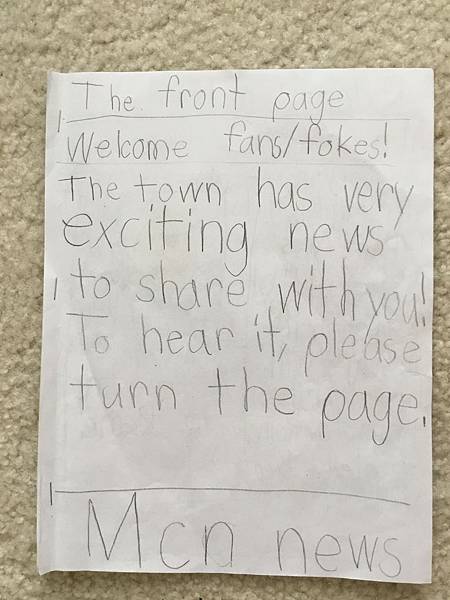 The front page
Welcome fans/fokes!
The town has very
exciting news
to share with you!
To hear it, please
turn the page.
Mcn news